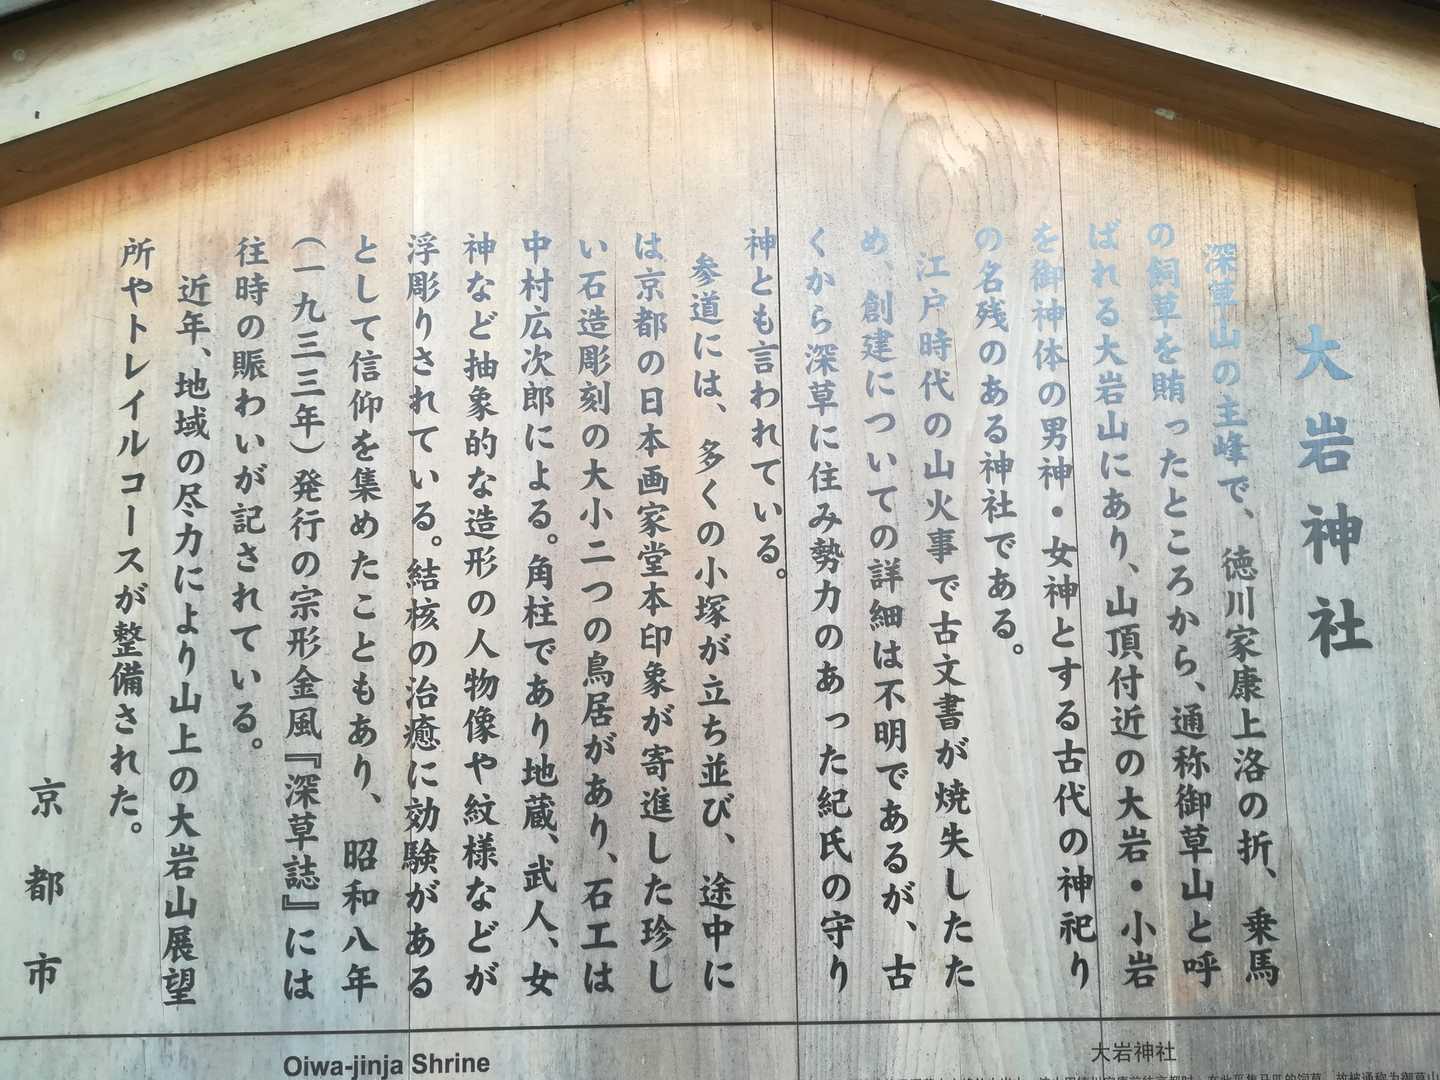 大岩神社
深草山の主峰で、徳川家康上洛の折、乗馬
の飼草を賄ったところから、通称御草山と呼
ばれる大岩山にあり、山頂付近の大岩・小岩
を御神体の男神・女神とする古代の神祀り
の名残のある神社である。
江戸時代の山火事で古文書が焼失したた
め、創建についての詳細は不明であるが、古
くから深草に住み勢力のあった紀氏の守り
神とも言われている。
参道には、多くの小塚が立ち並び、途中に
は京都の日本画家堂本印象が寄進した珍し
い石造彫刻の大小二つの鳥居があり、石工は
中村広次郎による。角柱であり地蔵、武人、女
神など抽象的な造形の人物像や紋様などが
浮彫りされている。結核の治癒に効験がある
として信仰を集めたこともあり、昭和八年
（一九三三年）発行の宗形金風『深草誌』には
往時の賑わいが記されている。
近年、地域の尽力により山上の大岩山展望
所やトレイルコースが整備された。
京都市
Oiwa-jinja Shrine
大岩神社